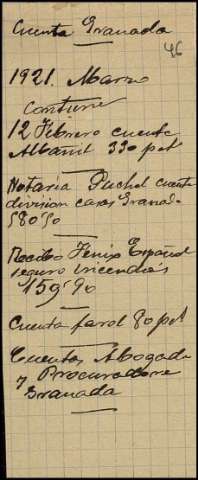 Cuenta Granada
46
1921. Marzo
contiene
12 Febrero cuenta
Albañil 330 pst
Notaria Puchol cuenta
division casas Grana-
580'50
Recibo Fenix Español
seguro incendios
159'90
Cuenta farol 80 pst
Cuentas Abogado
y Procuradore
Granada